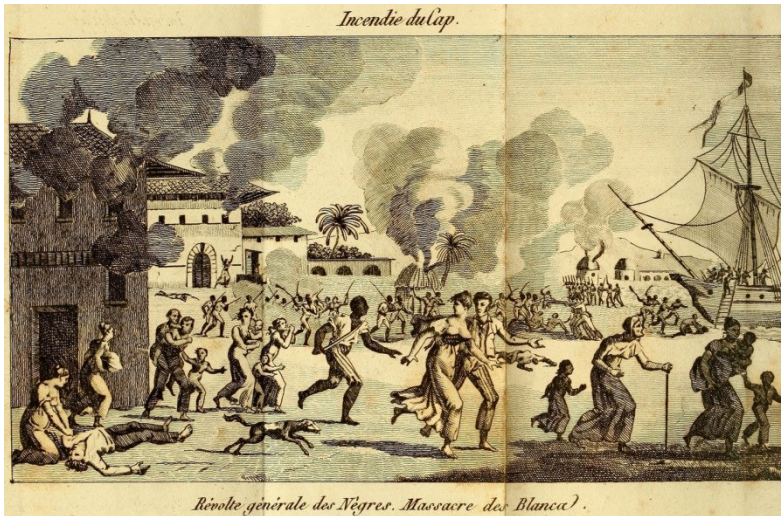 Incendie du Cap.
Révolte générale des Nègres. Massacre des Blancs).